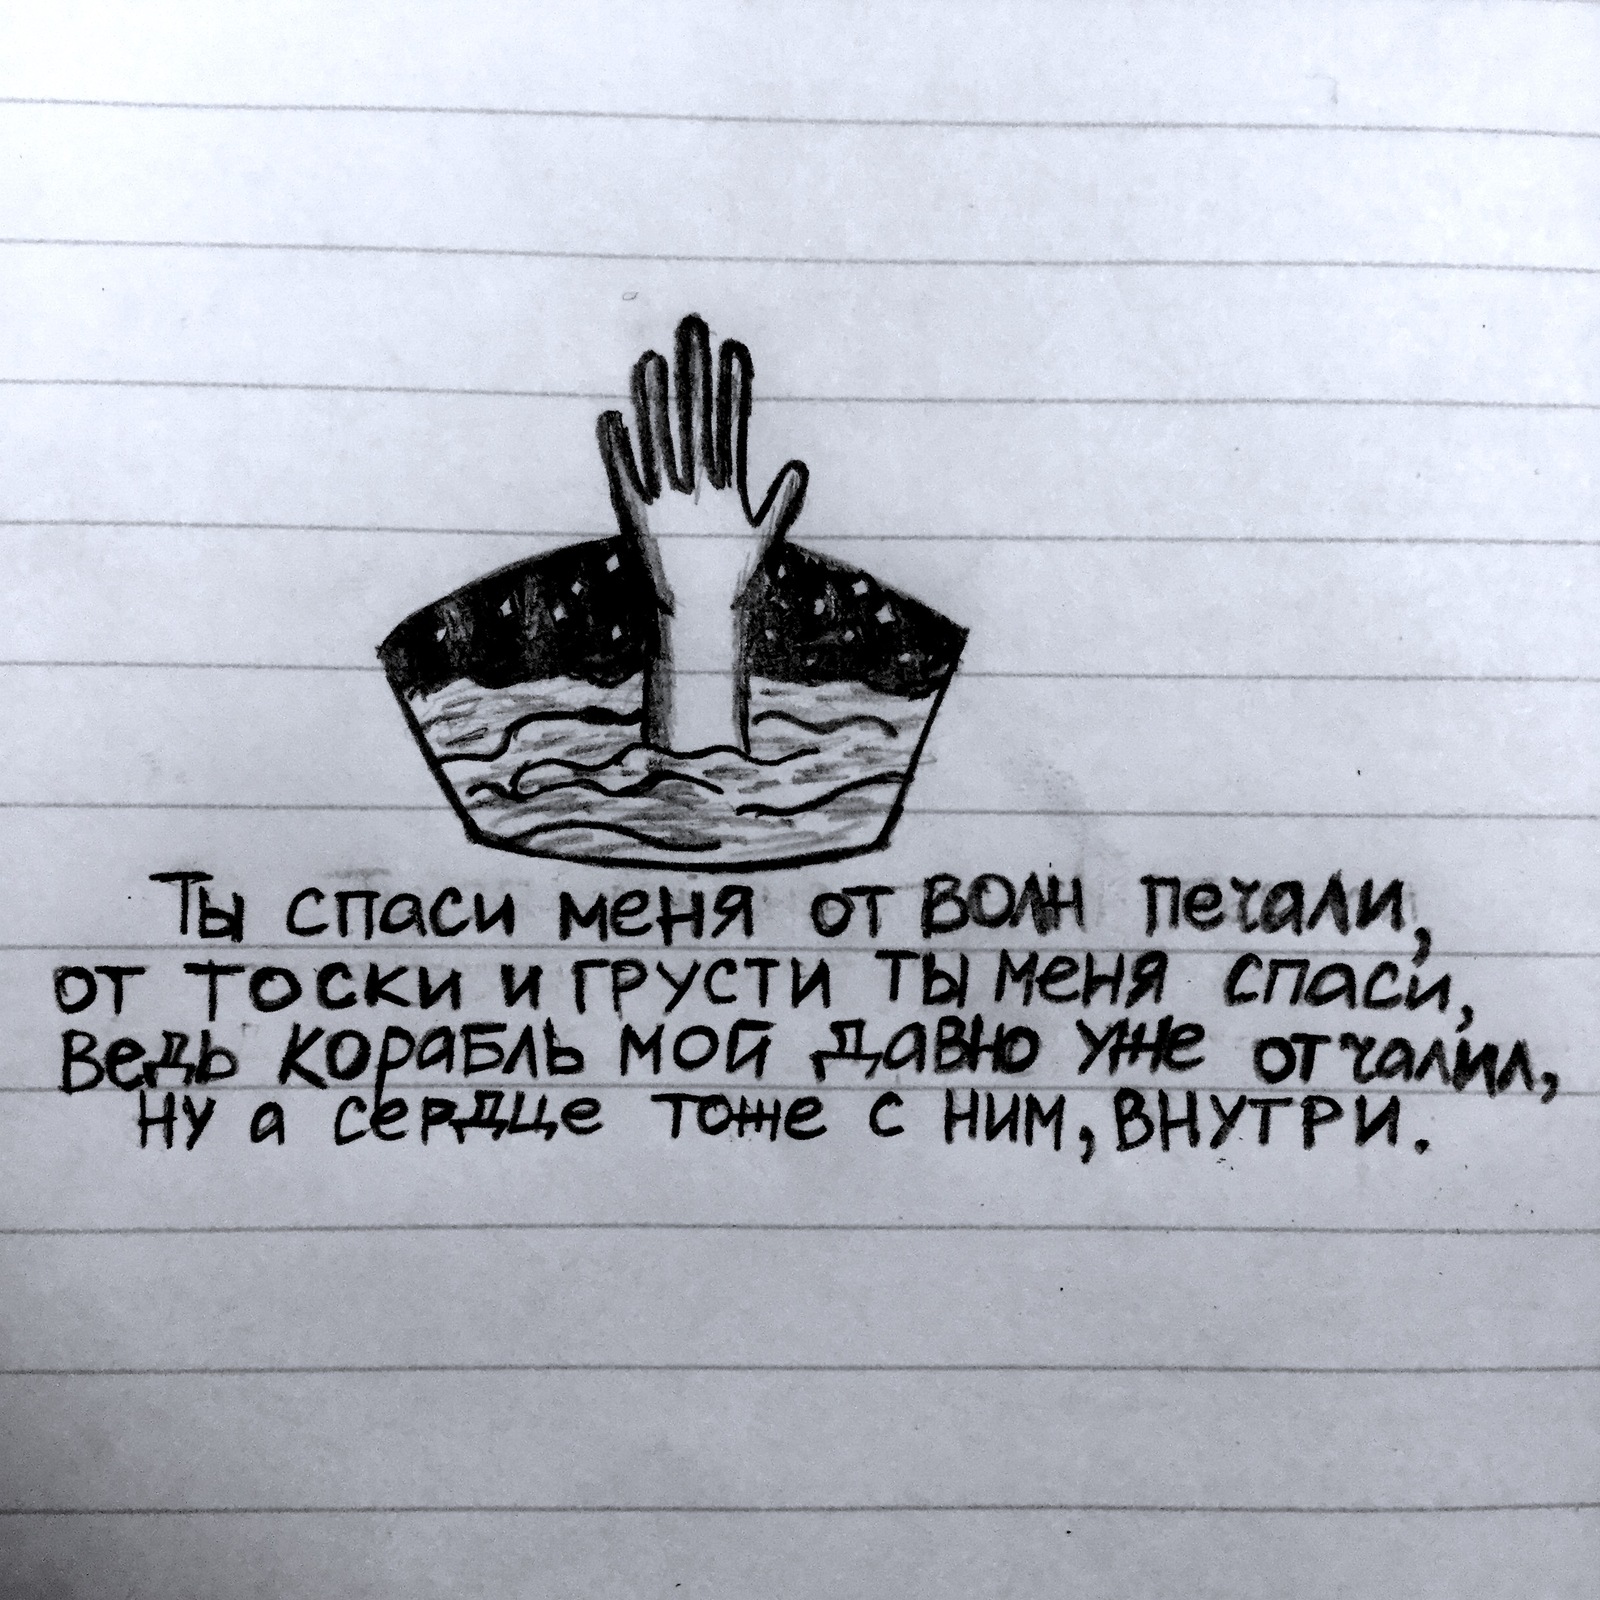 Ты спаси меня от волн печали,
от тоски и грусти ты меня спаси,
ведь корабль мой давно уже отчалил,
ну а сердце тоже с ним, внутри.